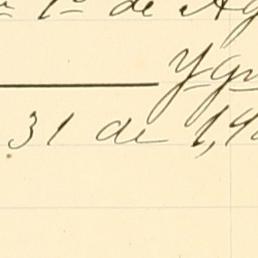 1º de Ag
Ygn
31 de 1,9